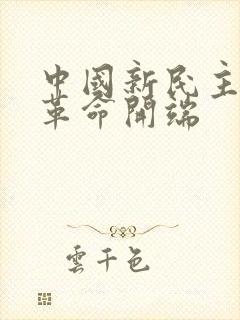 中國新民主
革命開端
雲千色